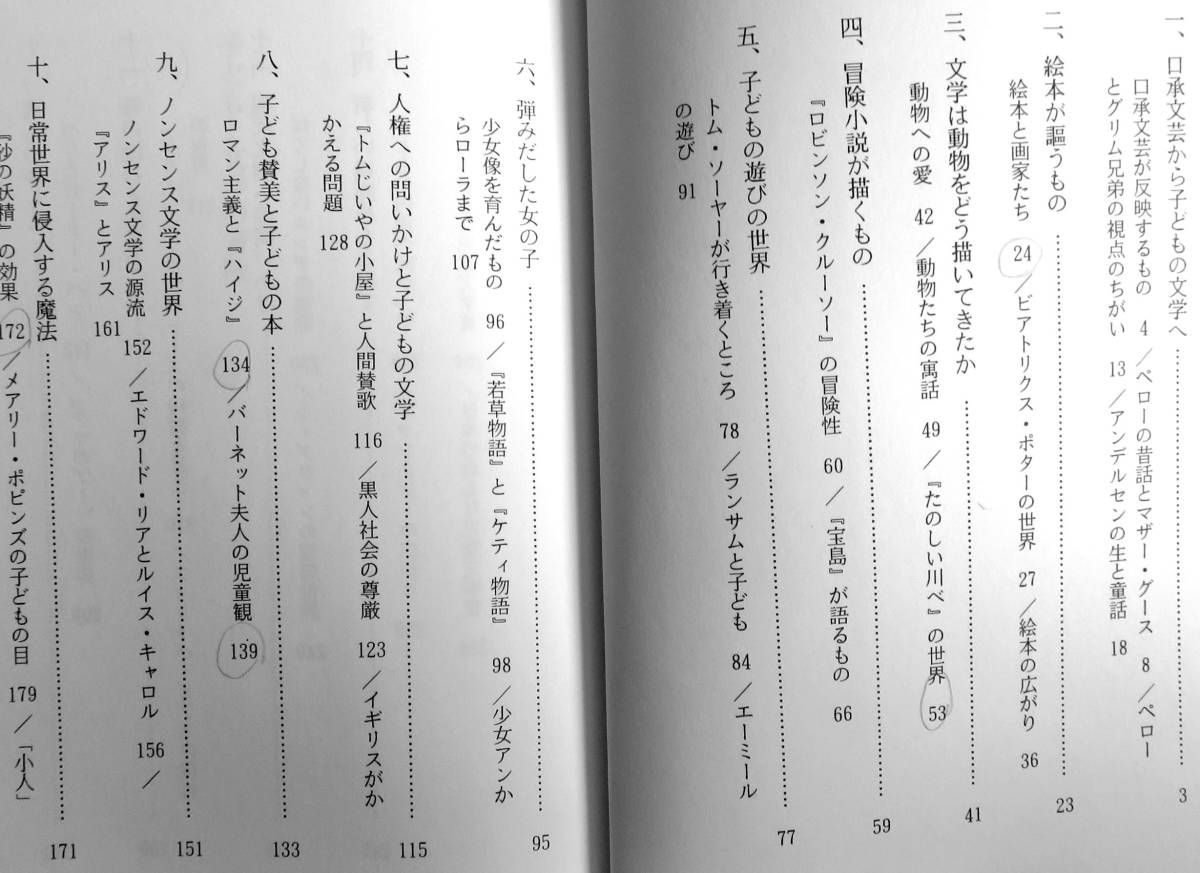 一、口承文芸から子どもの文学へ……………3
口承文芸が反映するもの 4 ／ペローの昔話とマザー・グース 8 ／ペロー
とグリム兄弟の視点のちがい 13 ／アンデルセンの生と童話 18
二、絵本が謳うもの……………23
絵本と画家たち 24 ／ビアトリクス・ポターの世界 27 ／絵本の広がり 36
三、文学は動物をどう描いてきたか……………41
動物への愛 42 ／動物たちの寓話 49 ／『たのしい川べ』の世界 53
四、冒険小説が描くもの……………59
『ロビンソン・クルーソー』の冒険性 60 ／『宝島』が語るもの 66
五、子どもの遊びの世界……………77
トム・ソーヤーが行き着くところ 78 ／ランサムと子ども 84 ／エーミール
の遊び 91
六、弾みだした女の子……………95
少女像を育んだもの 96 ／『若草物語』と『ケティ物語』 98 ／少女アンか
らローラまで 107
七、人権への問いかけと子どもの文学……………115
『トムじいやの小屋』と人間賛歌 116 ／黒人社会の尊厳 123 ／イギリスがか
かえる問題 128
八、子ども賛美と子どもの本……………133
ロマン主義と『ハイジ』 134 ／バーネット夫人の児童観 139
九、ノンセンス文学の世界……………151
ノンセンス文学の源流 152 ／エドワード・リアとルイス・キャロル 156 ／
『アリス』とアリス 161
十、日常世界に侵入する魔法……………171
『砂の妖精』の効果 172 ／メアリー・ポピンズの子どもの目 179 ／「小人」